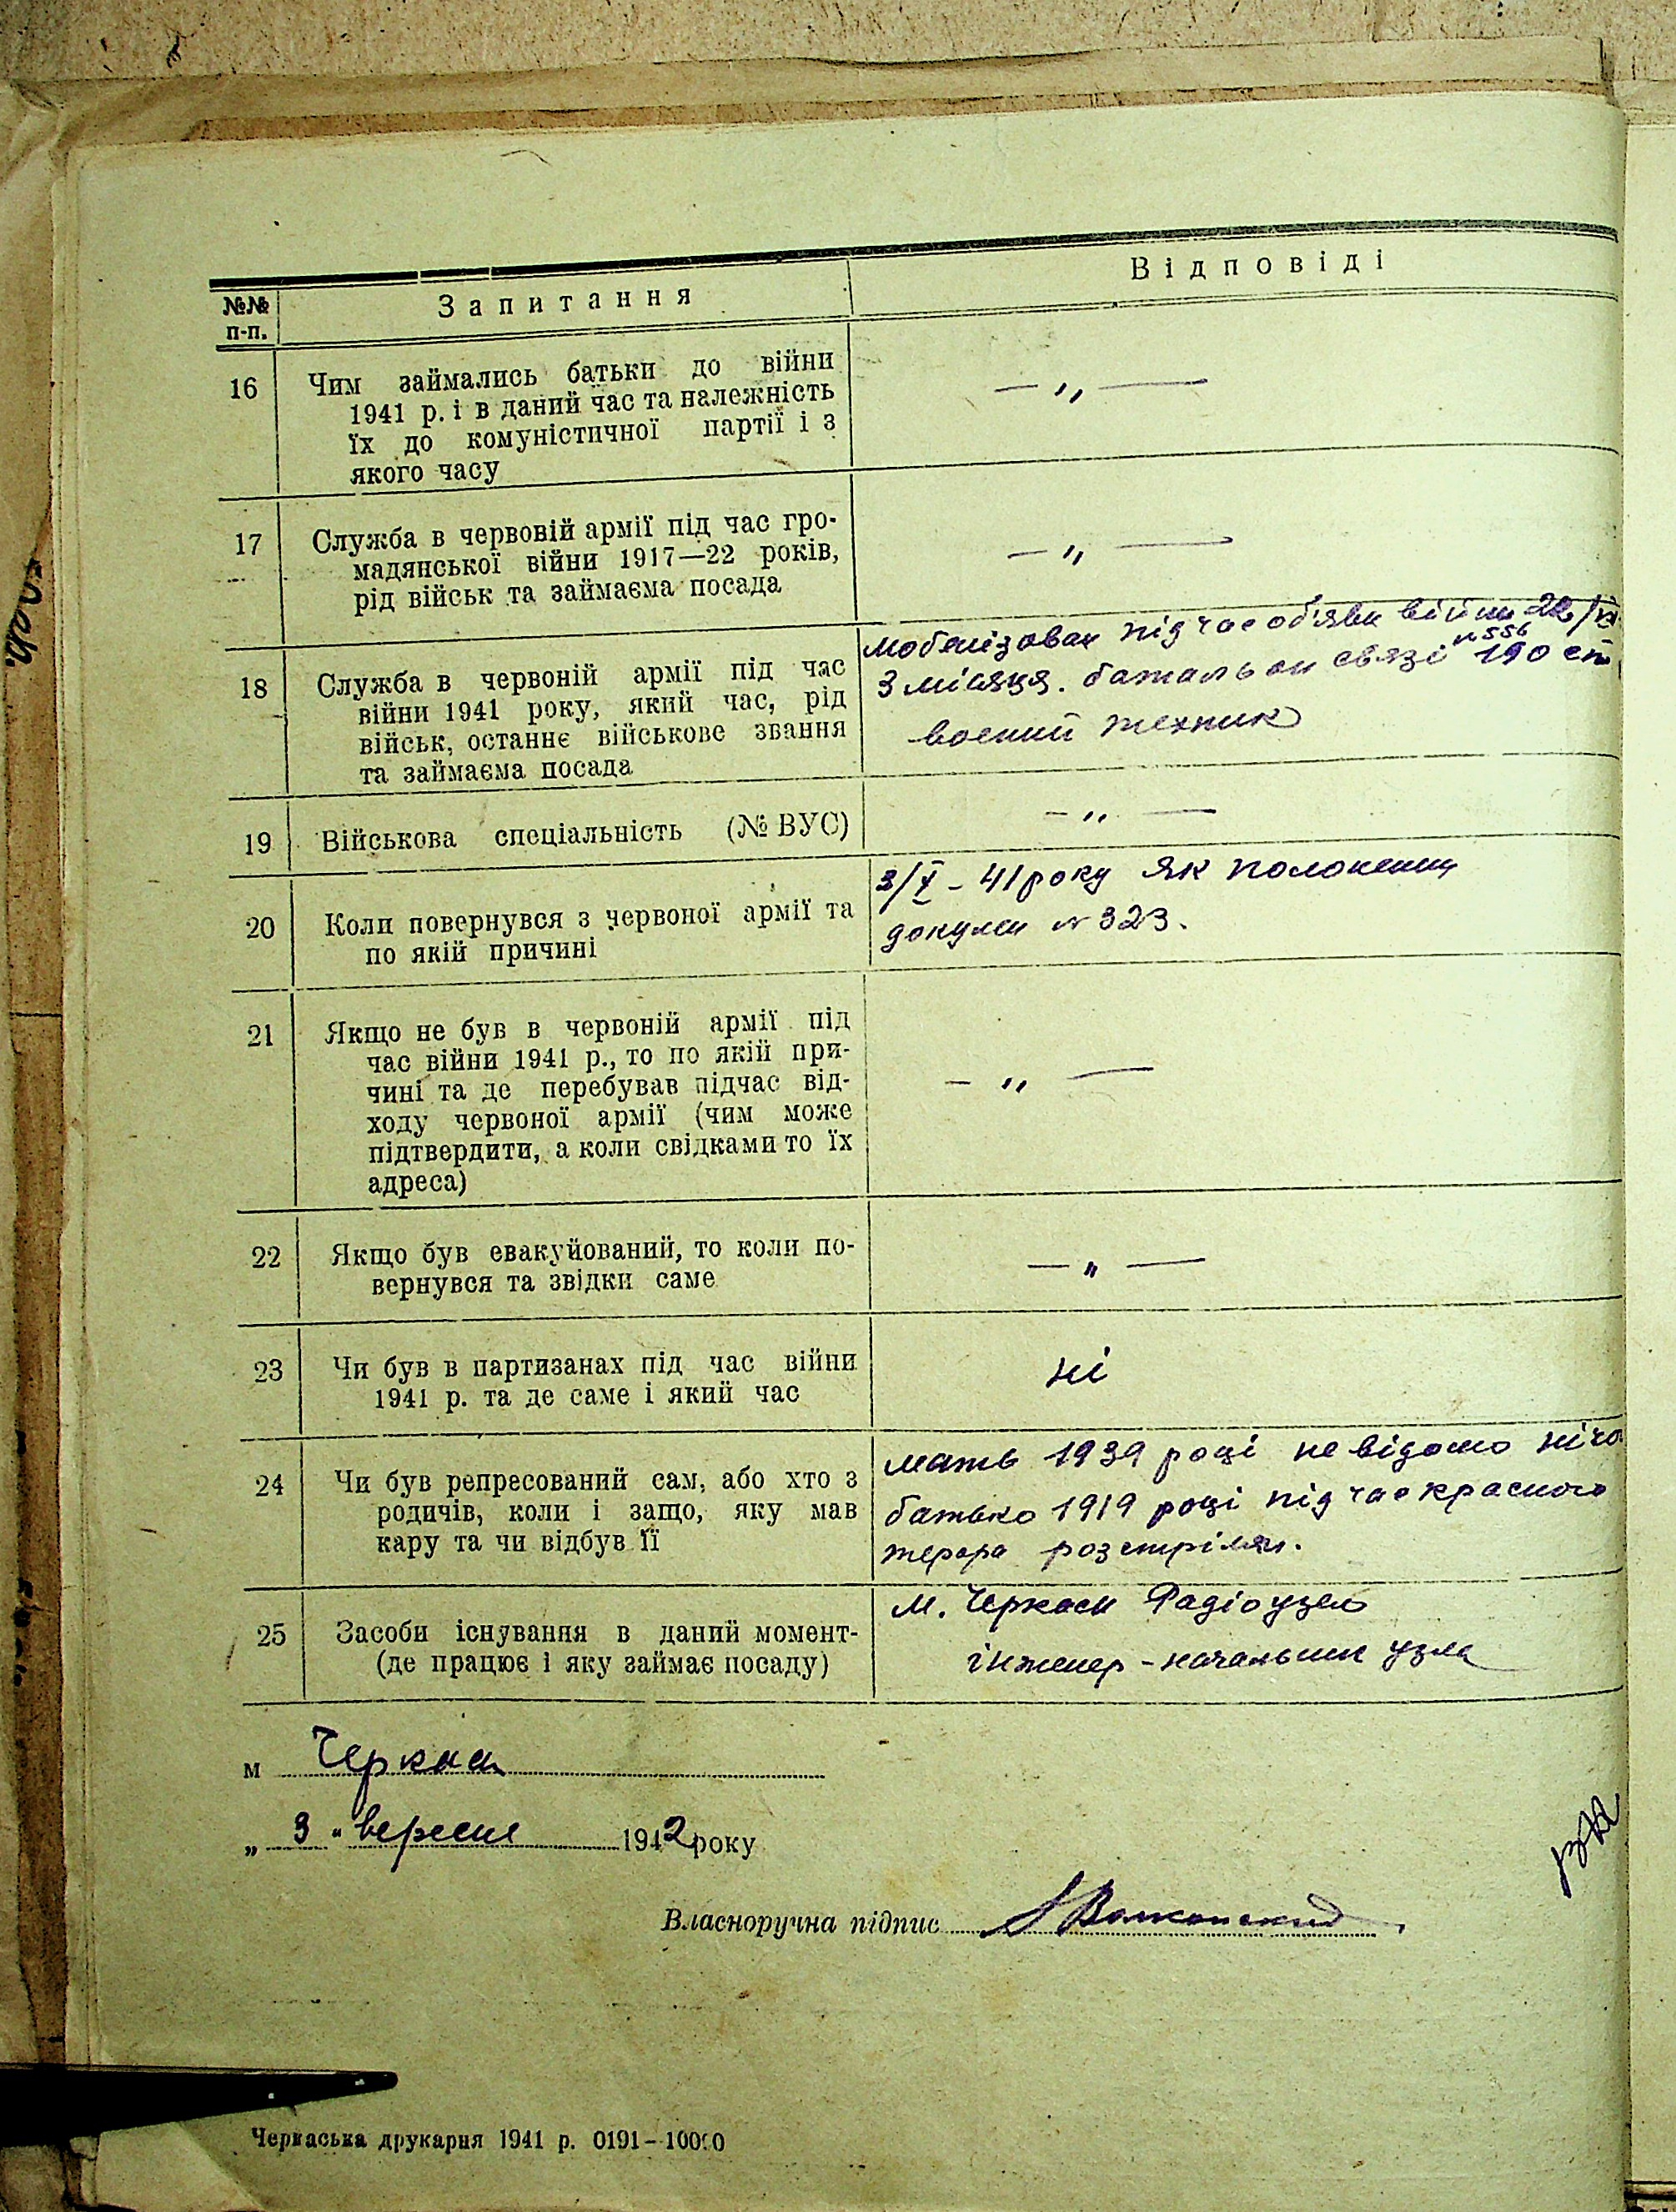 №№ п-п.
Запитання
Відповіді
16
Чим займались батьки до війни
1941 р. і в даний час та належність
їх до комуністичної партії і з
якого часу
— „ —
17
Служба в червовій армії під час гро-
мадянської війни 1917—22 років,
рід військ та займаєма посада
— „ —
18
Служба в червоній армії під час
війни 1941 року, який час, рід
військ, останнє військове звання
та займаєма посада
мобелізован підчас обяви війни
№ 556
3 місяця. батальон связі 190
воений техник
19
Військова спеціальність (№ ВУС)
— „ —
20
Коли повернувся з червоної армії та
по якій причині
3/X - 41 року як полонений
докумен № 323.
21
Якщо не був в червоній армії під
час війни 1941 р., то по якій при-
чині та де перебував підчас від-
ходу червоної армії (чим може
підтвердити, а коли свідками то їх
адреса)
— „ —
22
Якщо був евакуйований, то коли по-
вернувся та звідки саме
— „ —
23
Чи був в партизанах під час війни
1941 р. та де саме і який час
ні
24
Чи був репресований сам, або хто з
родичів, коли і защо, яку мав
кару та чи відбув її
мать 1939 році невідомо
батько 1919 році підчас красного
терора розстрілян.
25
Засоби існування в даний момент-
(де працює і яку займає посаду)
м. Черкаси Радіоузел
інженер - начальник узла
м Черкаси
„ 3 " вересня 1942 року
Власноручна підпис Волконский
Черкаська друкарня 1941 р. 0191-10000